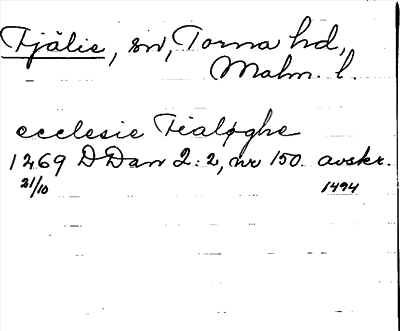 Fjälie, sn, Torna hd,
Malm. l.
ecclesie Fialøghe
1269 DDan 2:2, nr 150. avskr.
21/10 1494